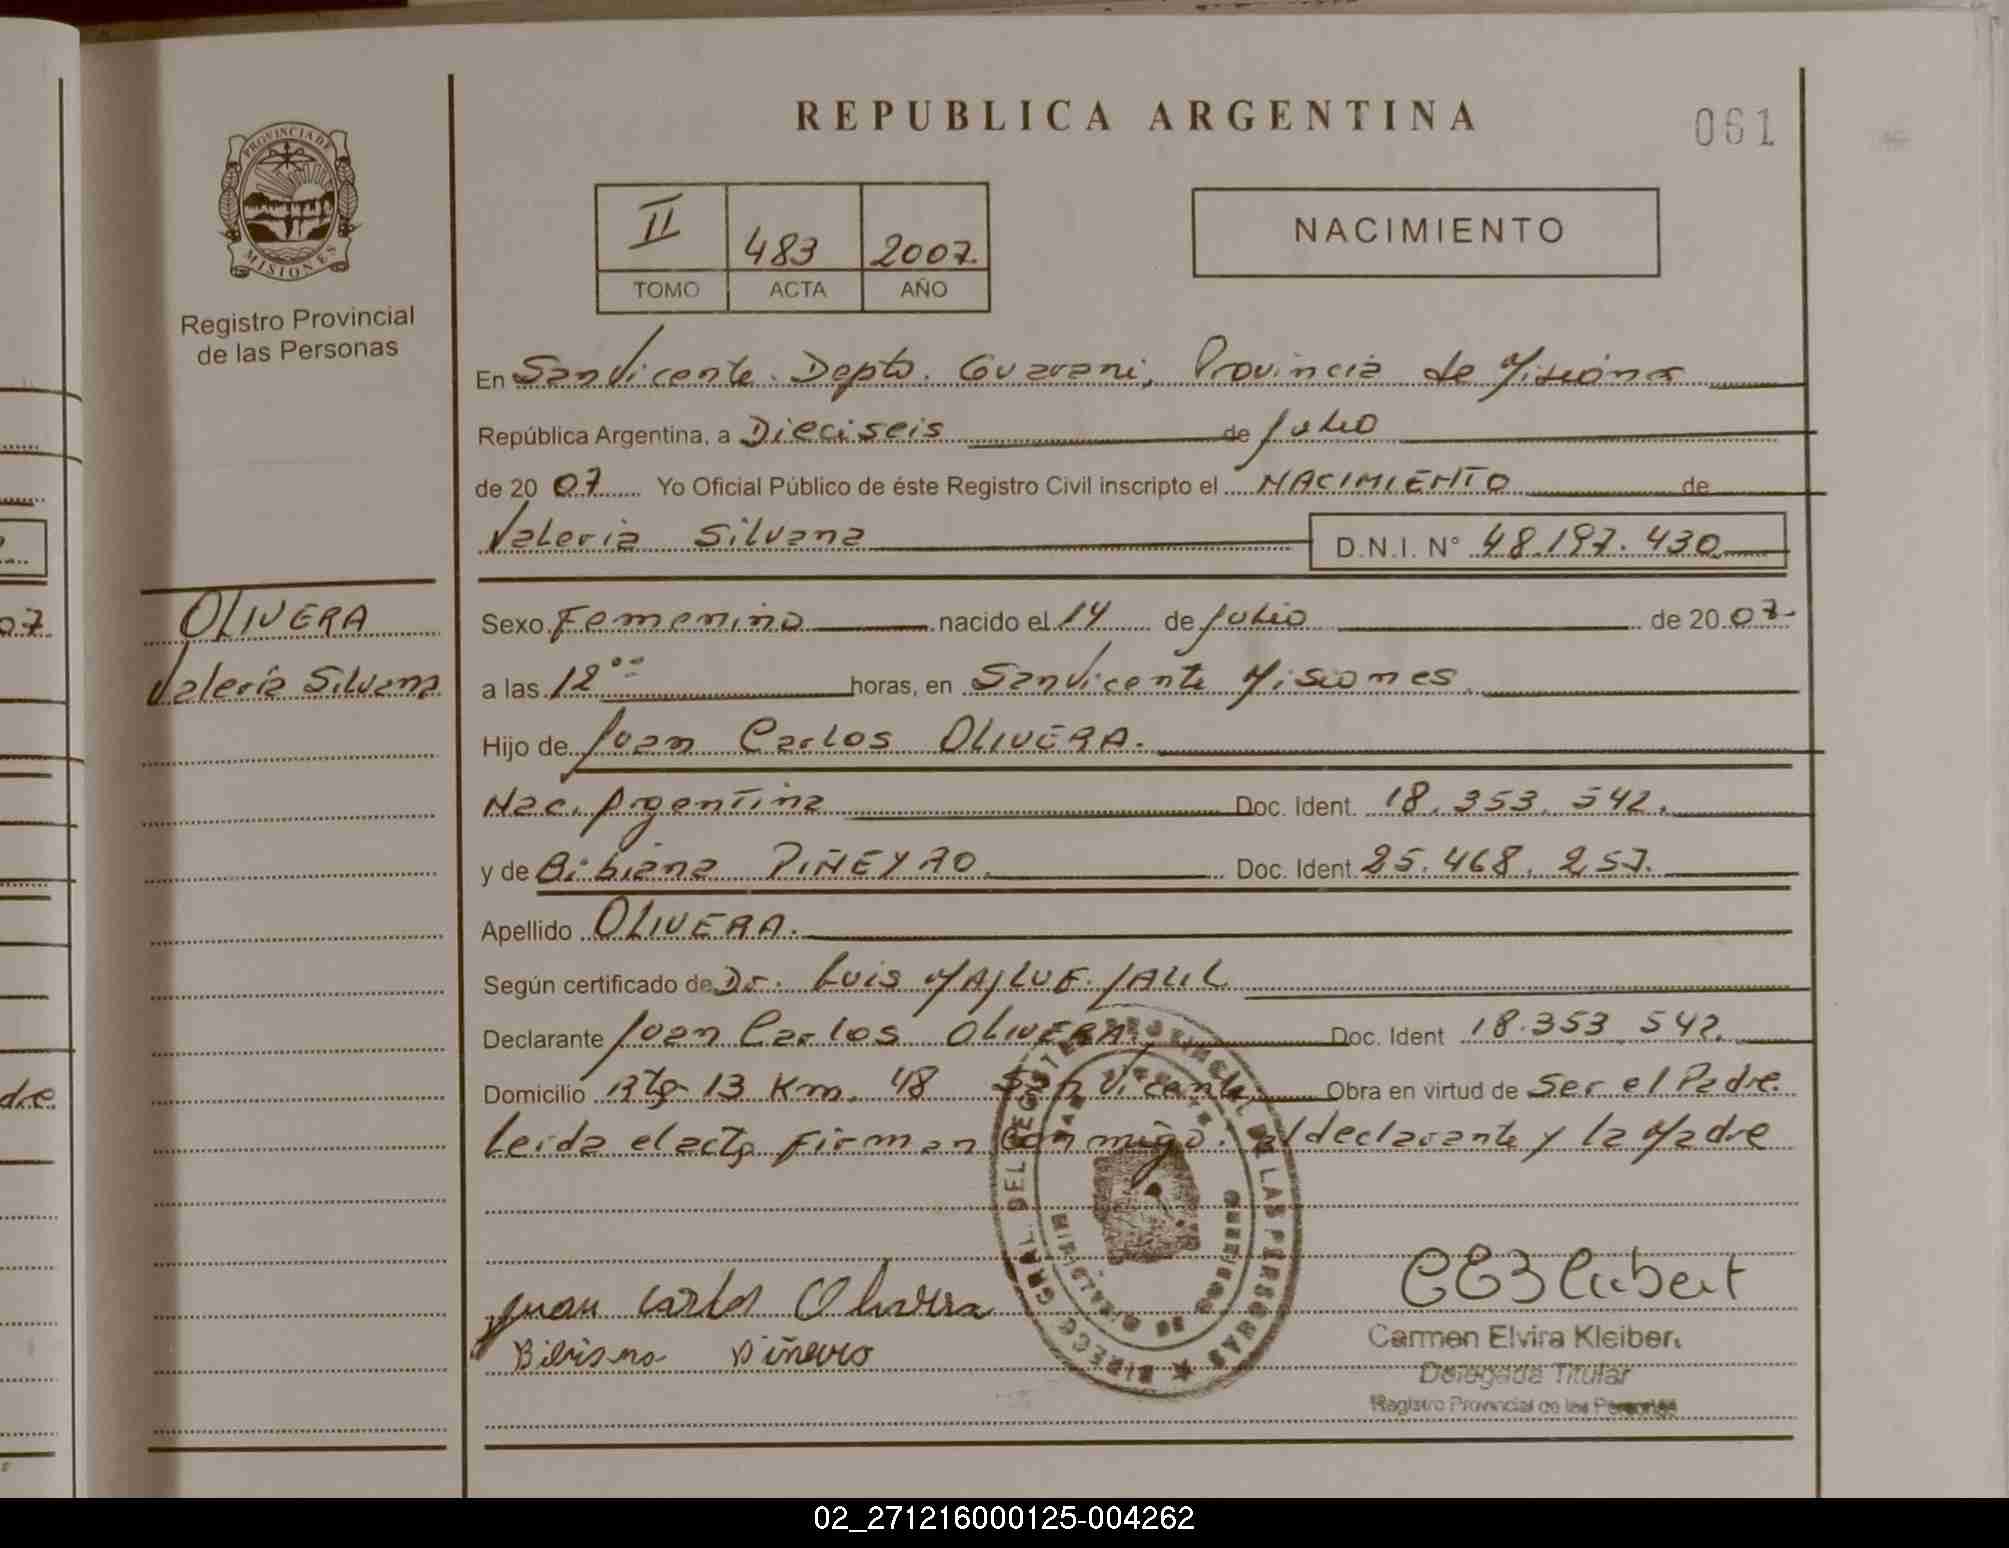 REPUBLICA ARGENTINA
061
PROVINCIA DE
MISIONES
Registro Provincial
de las Personas
II 483 2007.
TOMO ACTA AÑO
NACIMIENTO
En San Vicente. Depto. Guarani, Provincia de Misiones
República Argentina, a Dieciseis de Julio
de 20 07 Yo Oficial Público de éste Registro Civil inscripto el NACIMIENTO de
Valeria Silvana D.N.I. N° 48.197.430
OLIVERA
Valeria Silvana
Sexo Femenino nacido el 14 de Julio de 20 07-
a las 12°° horas, en San Vicente Misiones
Hijo de Juan Carlos OLIVERA.
Nac. Argentina Doc. Ident. 18.353.542.
y de Bibiana PIÑEYRO. Doc. Ident. 25.468.257.
Apellido OLIVERA.
Según certificado de Dr. Luis
Declarante Juan Carlos OLIVERA. Doc. Ident 18.353.542.
Domicilio Rta 13 Km. 48 San Vicente Obra en virtud de Ser el Padre
Leida el acta firman conmigo. el declarante y la Madre
DIRECC. GRAL. DEL REGISTRO PROVINCIAL DE LAS PERSONAS
Juan Carlos Olivera
Bibiana Piñeyro
Carmen Elvira Kleibert
Delegada Titular
Registro Provincial de las Personas
02_271216000125-004262